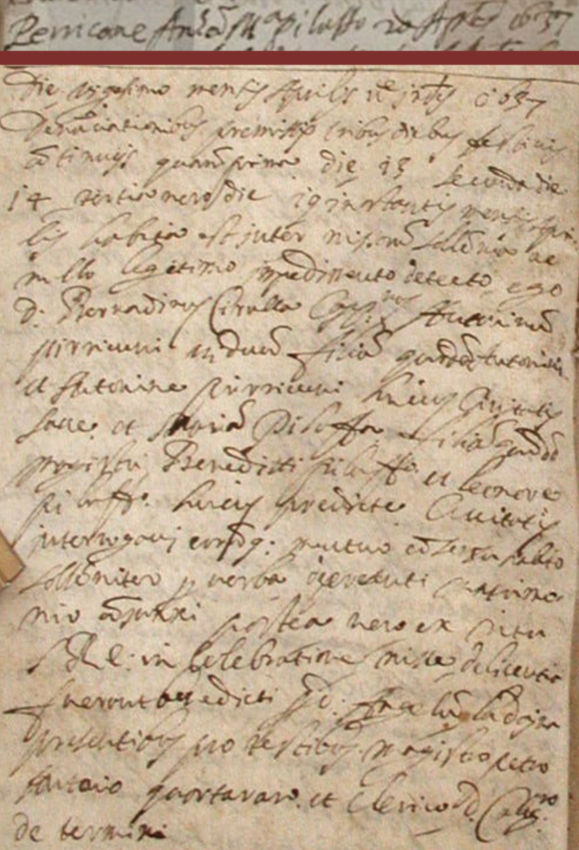 Perricone Ant.o M.a Piluffo 20 Apr. 1657
Die vigesimo mensis Aprilis x Ind.s 1657
Denunciationibus premissis tribus diebus festivis
continuis quarum prima die 13 secunda die
14 tertia vero die 19 instantis mensis Apri
lis habita est inter missarum sollemnia ac
nullo legitimo impedimento detecto ego
D. Bernardinus Cirulla Antoninum
Pirriconi viduum filium quondam Antonini
et Antonine Pirriconi huius Civitatis
Sacce et Mariam Piluffa filiam quondam
magistri Benedicti Piluffo et Leonore
Piluffo huius predicte Civitatis
interrogavi eorumq: mutuo consensu habito
sollemniter p verba de presenti matrimo
nio coniunxi postea vero ex ritu
S.R.E: in celebratione misse
fuerunt benedicti
presentibus pro testibus magistro Petro
Antonio quartararo et Clerico D. Cal.ro
de termini